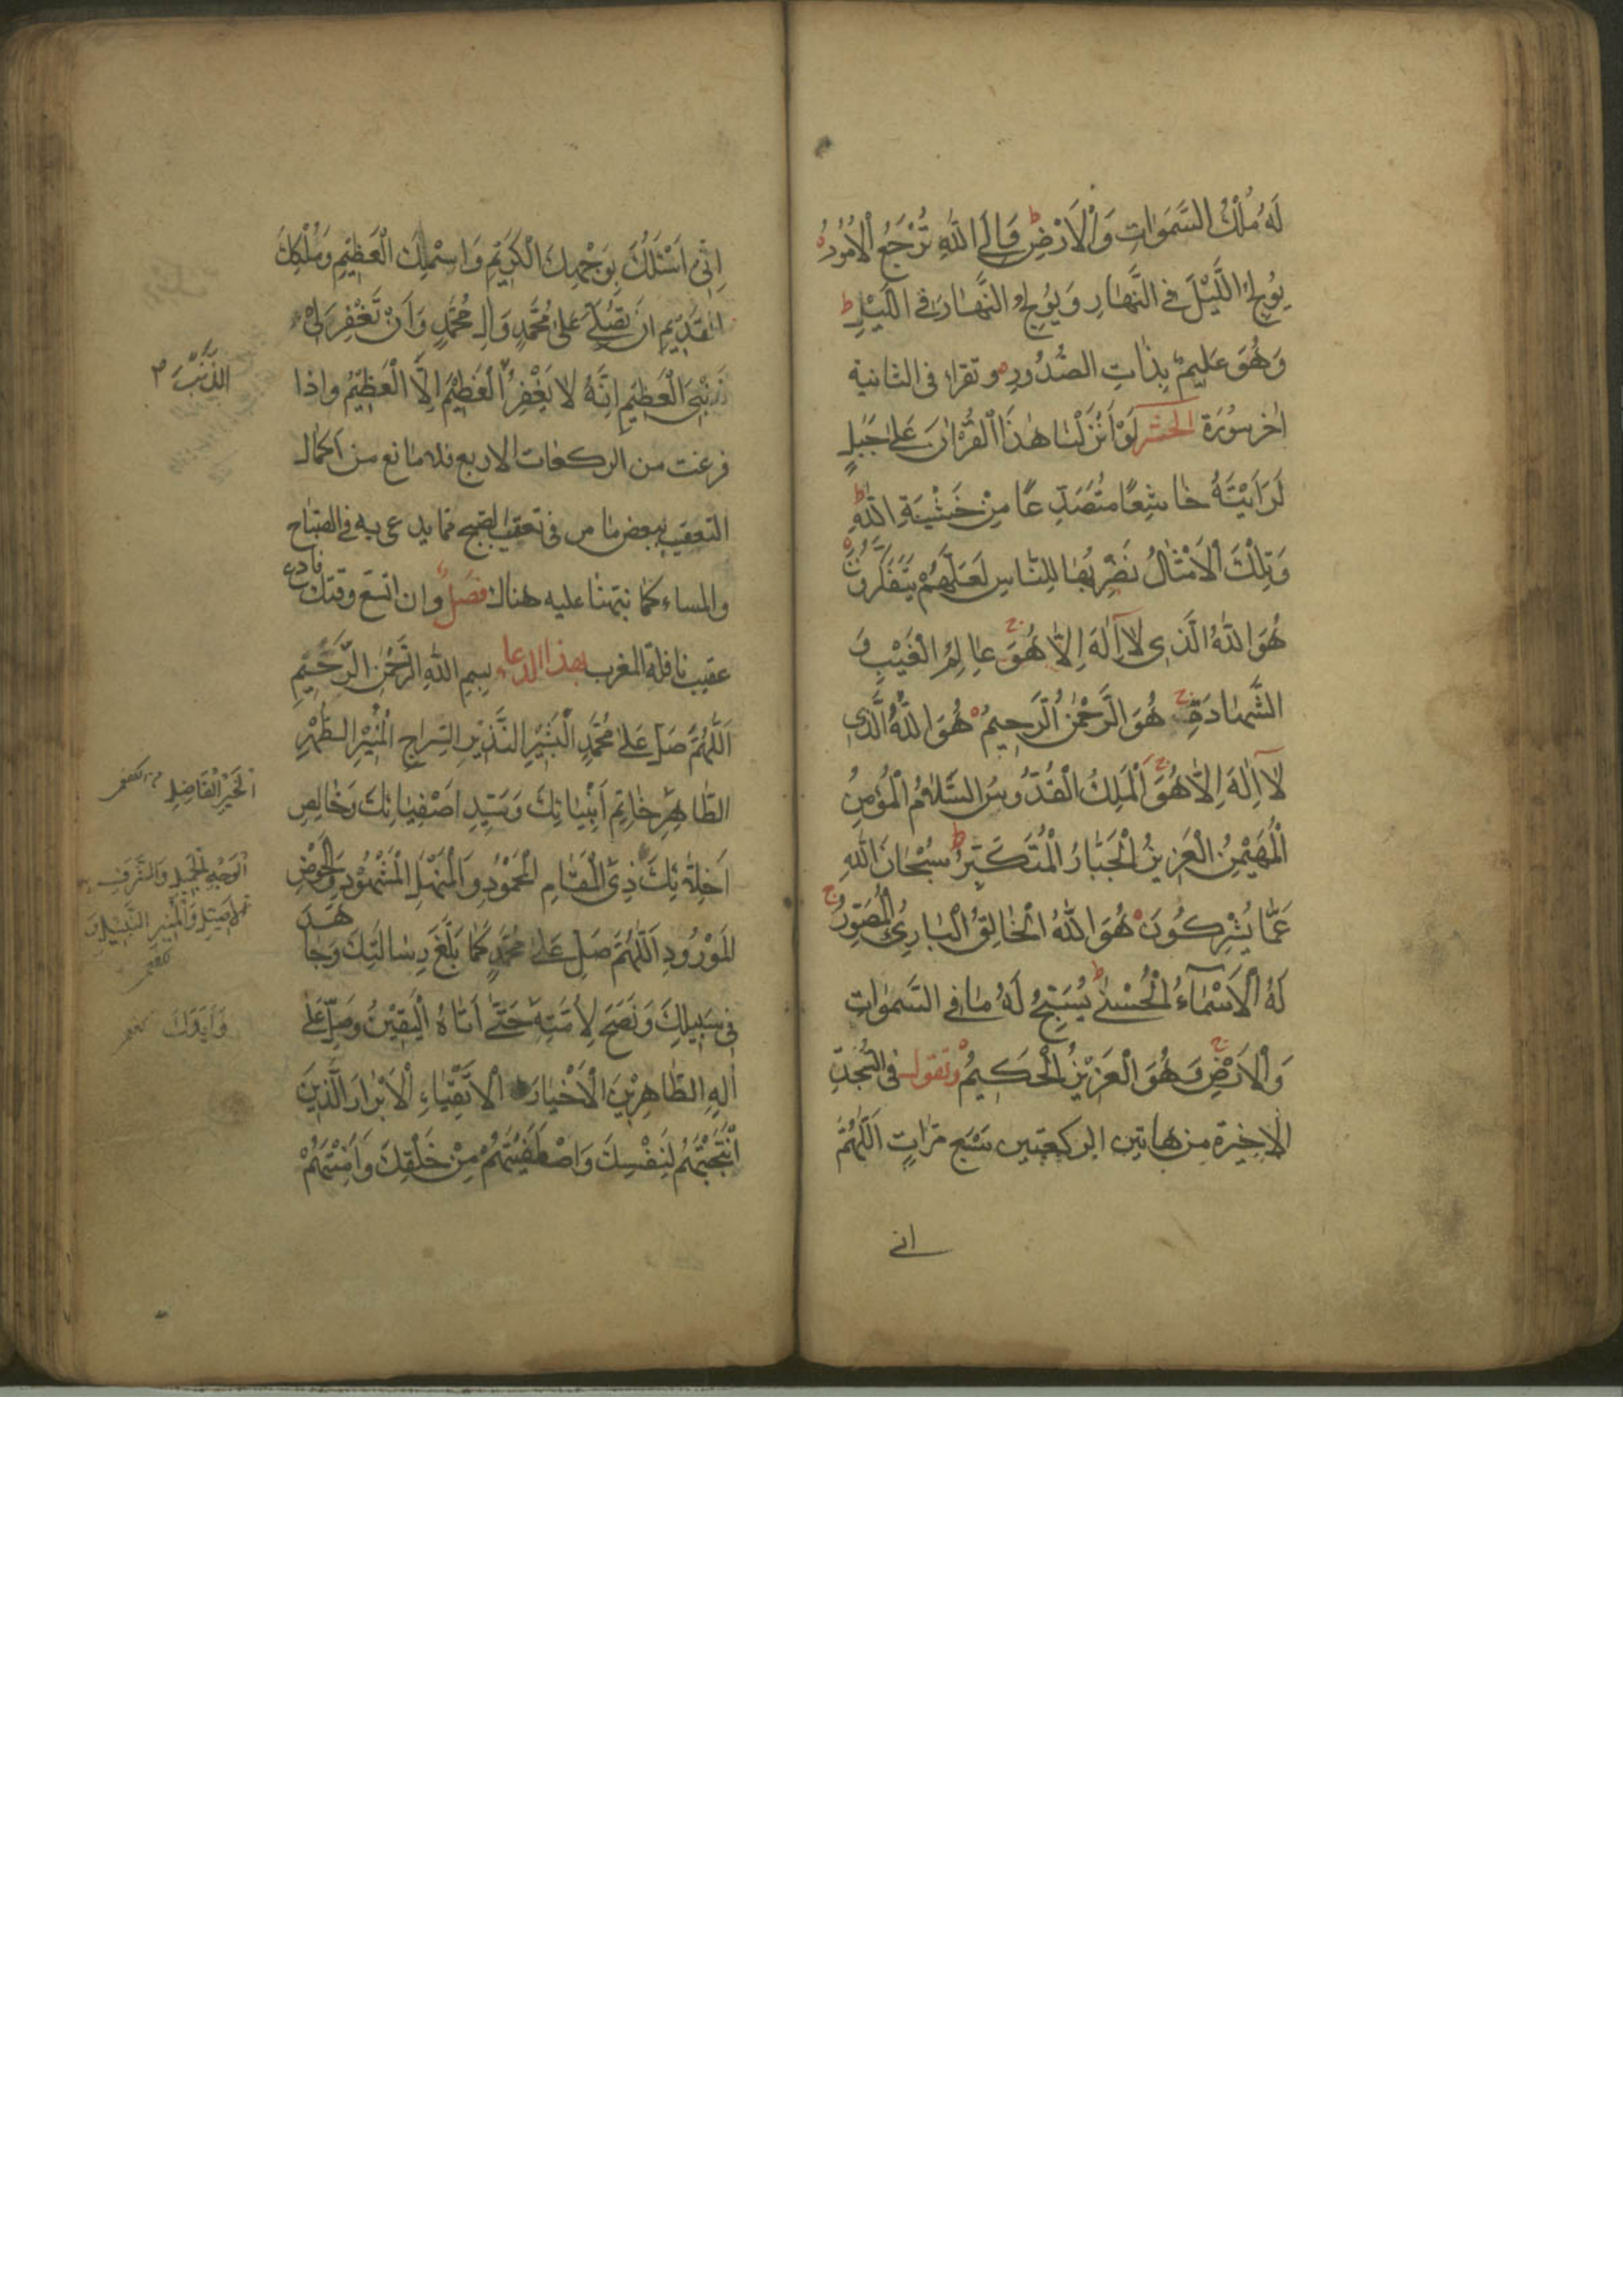 لَهُ مُلْكُ السَّمَوَاتِ وَالْاَرْضِ ط وَاِلَى اللهِ تُرْجَعُ الْاُمُورُ
يُولِجُ اللَّيْلَ فِي النَّهَارِ وَيُولِجُ النَّهَارَ فِي اللَّيْلِ ط
وَهُوَ عَلِيمٌ بِذَاتِ الصُّدُورِ وتقرا، فى الثانية
اٰخر سُورَة الحشر لَوْ اَنْزَلْنَا هٰذَا الْقُرْاٰنَ عَلىٰ جَبَلٍ
لَرَاَيْتَهُ خَاشِعًا مُتَصَدِّعًا مِنْ خَشْيَةِ اللهِ ط
وَتِلْكَ الْاَمْثَالُ نَضْرِبُهَا لِلنَّاسِ لَعَلَّهُمْ يَتَفَكَّرُونَ
هُوَ اللهُ الَّذِى لَا اِلٰهَ اِلَّا هُوَ ج عَالِمُ الْغَيْبِ وَ
الشَّهَادَةِ ج هُوَ الرَّحْمٰنُ الرَّحِيمُ هُوَ اللهُ الَّذِى
لَا اِلٰهَ اِلَّا هُوَ ج اَلْمَلِكُ الْقُدُّوسُ السَّلَامُ الْمُؤْمِنُ
الْمُهَيْمِنُ الْعَزِيزُ الْجَبَّارُ الْمُتَكَبِّرُ ط سُبْحَانَ اللهِ
عَمَّا يُشْرِكُونَ هُوَ اللهُ الْخَالِقُ الْبَارِئُ الْمُصَوِّرُ ج
لَهُ الْاَسْمَآءُ الْحُسْنىٰ ط يُسَبِّحُ لَهُ مَا فِي السَّمَوَاتِ
وَالْاَرْضِ ج وَهُوَ الْعَزِيزُ الْحَكِيمُ وتقول فى السّجدة
الاخيرة من هاتين الركعتين سَبْع مَرّاتٍ اَللّٰهُمَّ
انى
اِنّى اَسْئَلُكَ بِوَجْهِكَ الْكَرِيْمِ وَاسْمِكَ الْعَظِيْمِ وَمُلْكِكَ
الْقَدِيْمِ اَنْ تُصَلِّىَ عَلىٰ مُحَمَّدٍ وَالِ مُحَمَّدٍ وَاَنْ تَغْفِرَ لىْ
ذَنْبِىَ الْعَظِيمَ اِنَّهُ لَا يَغْفِرُ الْعَظِيْمَ اِلَّا الْعَظِيْمُ واذا
الذَّنْبَ
فرغت من الركعات الاربع فلا مانع من اكمال
التعقيب ببعض ما مر فى تعقيب الصبح مما يدعى به فى الصّباح
والمساء كما نبّهنا عليه هناك فصل وان اتسع وقتك فادع
عقيب نافلة المغرب بهذا الدعاء بِسمِ اللهِ الرَّحْمٰنِ الرَّحيمِ
اَللّٰهُمَّ صَلِّ عَلىٰ مُحَمَّدٍ الْبَشِيْرِ النَّذِيْرِ السِّرَاجِ الْمُنِيْرِ الطُّهْرِ
الطَّاهِرِ خَاتِمِ اَنْبِيَائِكَ وَسَيِّدِ اَصْفِيَائِكَ وَخَالِصِ
الْخَيْرِ الْفَاضِلِ
اَخِلَّائِكَ ذِى الْمَقَامِ الْمَحْمُوْدِ وَالْمَنْهَلِ الْمَشْهُوْدِ وَالْحَوْضِ
الْوَجْهِ الْجَمِيلِ وَالشَّرَفِ
الْاَصِيلِ وَالْمِنْبَرِ النَّبِيلِ
الْمَوْرُودِ اَللّٰهُمَّ صَلِّ عَلىٰ مُحَمَّدٍ كَمَا بَلَّغَ رِسَالَتِكَ وَجَاهَدَ
فى سَبِيلِكَ وَنَصَحَ لِاُمَّتِهِ حَتّىٰ اَتَاهُ الْيَقِيْنُ وَصَلِّ عَلىٰ
اٰلِهِ الطَّاهِرِيْنَ الْاَخْيَارِ الْاَتْقِيَاءِ الْاَبْرَارِ الَّذِينَ
انْتَجَبْتَهُمْ لِنَفْسِكَ وَاصْطَفَيْتَهُمْ مِنْ خَلْقِكَ وَاَمِنْتَهُمْ